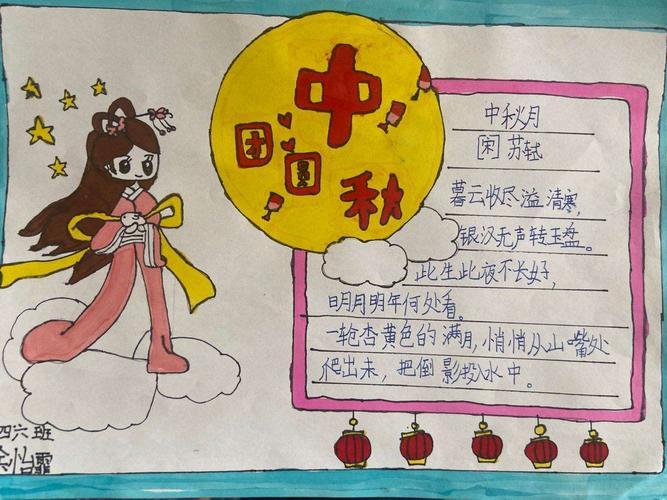 中秋
团圆
中秋月
[宋] 苏轼
暮云收尽溢清寒,
银汉无声转玉盘。
此生此夜不长好,
明月明年何处看。
一轮杏黄色的满月,悄悄从山嘴处
爬出未,把倒影投入水中。
四六班
怡霏